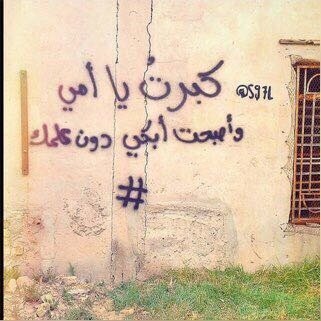 كبرتُ يا أمي
@S97L
وأصبحت أبكي دون علمك
#